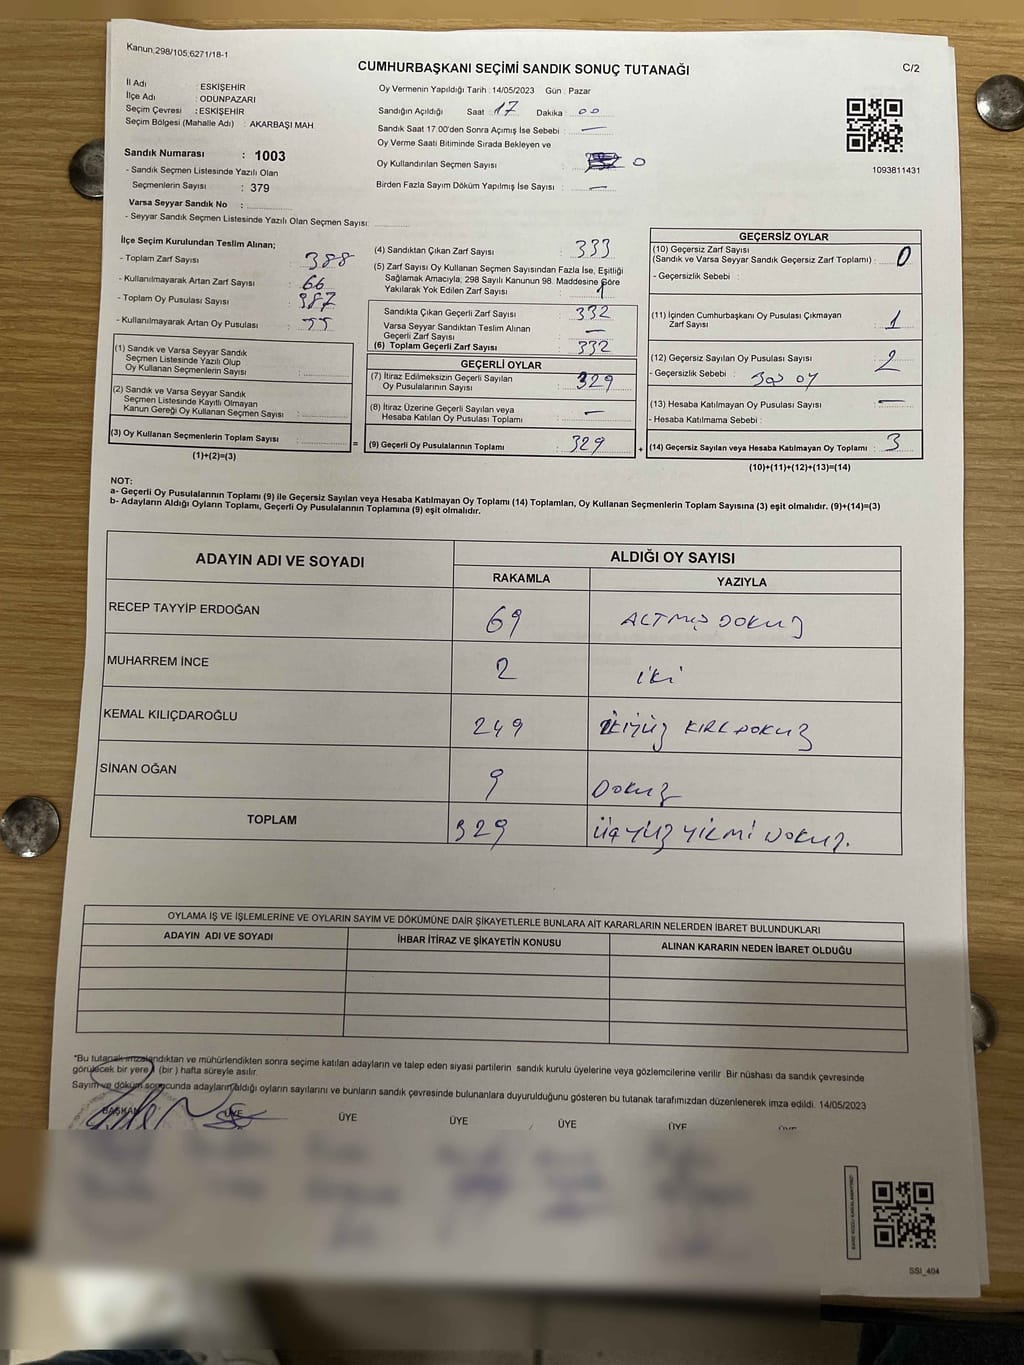 Kanun,298/105,6271/18-1
CUMHURBAŞKANI SEÇİMİ SANDIK SONUÇ TUTANAĞI
C/2
İl Adı : ESKİŞEHİR
İlçe Adı : ODUNPAZARI
Seçim Çevresi : ESKİŞEHİR
Seçim Bölgesi (Mahalle Adı) : AKARBAŞI MAH
Sandık Numarası : 1003
- Sandık Seçmen Listesinde Yazılı Olan
Seçmenlerin Sayısı : 379
Varsa Seyyar Sandık No :
- Seyyar Sandık Seçmen Listesinde Yazılı Olan Seçmen Sayısı:
Oy Vermenin Yapıldığı Tarih : 14/05/2023 Gün : Pazar
Sandığın Açıldığı Saat 17 Dakika : 00
Sandık Saat 17:00'den Sonra Açımış İse Sebebi : —
Oy Verme Saati Bitiminde Sırada Bekleyen ve
Oy Kullandırılan Seçmen Sayısı : 0
Birden Fazla Sayım Döküm Yapılmış İse Sayısı : —
1093811431
İlçe Seçim Kurulundan Teslim Alınan;
- Toplam Zarf Sayısı : 388
- Kullanılmayarak Artan Zarf Sayısı : 66
- Toplam Oy Pusulası Sayısı : 387
- Kullanılmayarak Artan Oy Pusulası : 55
(1) Sandık ve Varsa Seyyar Sandık
Seçmen Listesinde Yazılı Olup
Oy Kullanan Seçmenlerin Sayısı :
(2) Sandık ve Varsa Seyyar Sandık
Seçmen Listesinde Kayıtlı Olmayan
Kanun Gereği Oy Kullanan Seçmen Sayısı :
(3) Oy Kullanan Seçmenlerin Toplam Sayısı :
(1)+(2)=(3)
(4) Sandıktan Çıkan Zarf Sayısı : 333
(5) Zarf Sayısı Oy Kullanan Seçmen Sayısından Fazla İse, Eşitliği
Sağlamak Amacıyla, 298 Sayılı Kanunun 98. Maddesine Göre
Yakılarak Yok Edilen Zarf Sayısı : 1
Sandıkta Çıkan Geçerli Zarf Sayısı : 332
Varsa Seyyar Sandıktan Teslim Alınan
Geçerli Zarf Sayısı : —
(6) Toplam Geçerli Zarf Sayısı : 332
GEÇERLİ OYLAR
(7) İtiraz Edilmeksizin Geçerli Sayılan
Oy Pusulalarının Sayısı : 329
(8) İtiraz Üzerine Geçerli Sayılan veya
Hesaba Katılan Oy Pusulası Toplamı : —
= (9) Geçerli Oy Pusulalarının Toplamı : 329 +
GEÇERSİZ OYLAR
(10) Geçersiz Zarf Sayısı
(Sandık ve Varsa Seyyar Sandık Geçersiz Zarf Toplamı) : 0
- Geçersizlik Sebebi :
(11) İçinden Cumhurbaşkanı Oy Pusulası Çıkmayan
Zarf Sayısı : 1
(12) Geçersiz Sayılan Oy Pusulası Sayısı : 2
- Geçersizlik Sebebi : oy
(13) Hesaba Katılmayan Oy Pusulası Sayısı : —
- Hesaba Katılmama Sebebi :
(14) Geçersiz Sayılan veya Hesaba Katılmayan Oy Toplamı : 3
(10)+(11)+(12)+(13)=(14)
NOT:
a- Geçerli Oy Pusulalarının Toplamı (9) ile Geçersiz Sayılan veya Hesaba Katılmayan Oy Toplamı (14) Toplamları, Oy Kullanan Seçmenlerin Toplam Sayısına (3) eşit olmalıdır. (9)+(14)=(3)
b- Adayların Aldığı Oyların Toplamı, Geçerli Oy Pusulalarının Toplamına (9) eşit olmalıdır.
ADAYIN ADI VE SOYADI
ALDIĞI OY SAYISI
RAKAMLA YAZIYLA
RECEP TAYYİP ERDOĞAN 69 ALTMIŞ DOKUZ
MUHARREM İNCE 2 iki
KEMAL KILIÇDAROĞLU 249 İKİYÜZ KIRK DOKUZ
SİNAN OĞAN 9 DOKUZ
TOPLAM 329 ÜÇYÜZ YİRMİ DOKUZ.
OYLAMA İŞ VE İŞLEMLERİNE VE OYLARIN SAYIM VE DÖKÜMÜNE DAİR ŞİKAYETLERLE BUNLARA AİT KARARLARIN NELERDEN İBARET BULUNDUKLARI
ADAYIN ADI VE SOYADI İHBAR İTİRAZ VE ŞİKAYETİN KONUSU ALINAN KARARIN NEDEN İBARET OLDUĞU
*Bu tutanak imzalandıktan ve mühürlendikten sonra seçime katılan adayların ve talep eden siyasi partilerin sandık kurulu üyelerine veya gözlemcilerine verilir. Bir nüshası da sandık çevresinde
görülecek bir yere (bir ) hafta süreyle asılır.
Sayım ve döküm sonucunda adayların aldığı oyların sayılarını ve bunların sandık çevresinde bulunanlara duyurulduğunu gösteren bu tutanak tarafımızdan düzenlenerek imza edildi. 14/05/2023
BAŞKAN ÜYE ÜYE ÜYE ÜYE ÜYE ÜYE
SSI_404